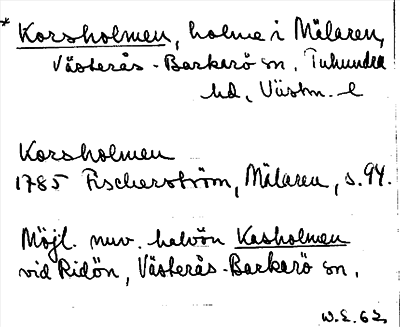 * Korsholmen, holme i Mälaren,
Västerås-Barkarö sn, Tuhundra
hd, Västm. l
Korsholmen
1785 Fischerström, Mälaren, s. 94.
Möjl. nuv. halvön Kasholmen
vid Ridön, Västerås-Barkarö sn.
W.E. 62